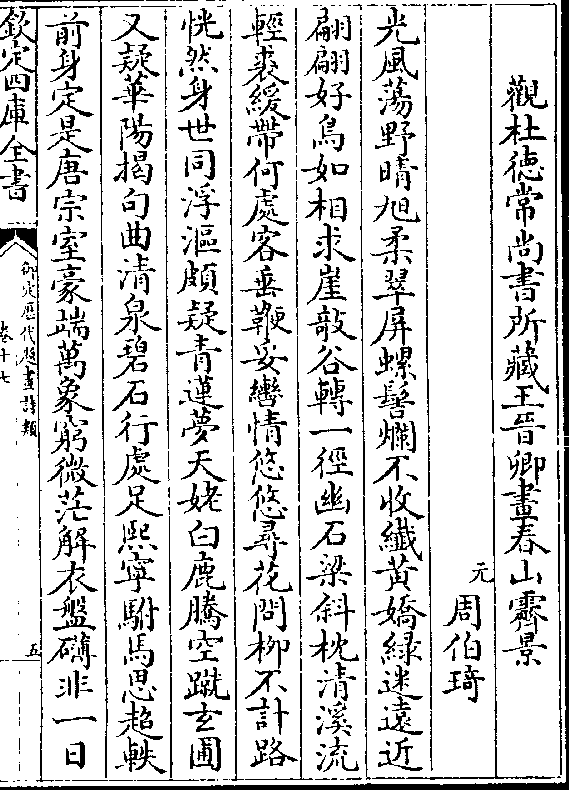 觀杜徳常尚書所藏王晉卿畫春山霽景
元周伯琦
光風蕩野晴旭柔翠屏螺髻爛不收纖黃嬌緑迷遠近
翩翩好鳥如相求崖敧谷轉一徑幽石梁斜枕清溪流
輕裘緩帶何處客垂鞭妥轡情悠悠尋花問柳不計路
恍然身世同浮漚頗疑青蓮夢天姥白鹿騰空蹴玄圃
又疑華陽揭句曲清泉碧石行處足熙寧駙馬思超軼
前身定是唐宗室豪端萬象窮微茫解衣盤礴非一日
欽定四庫全書
御定歴代題畫詩類
卷十七
五